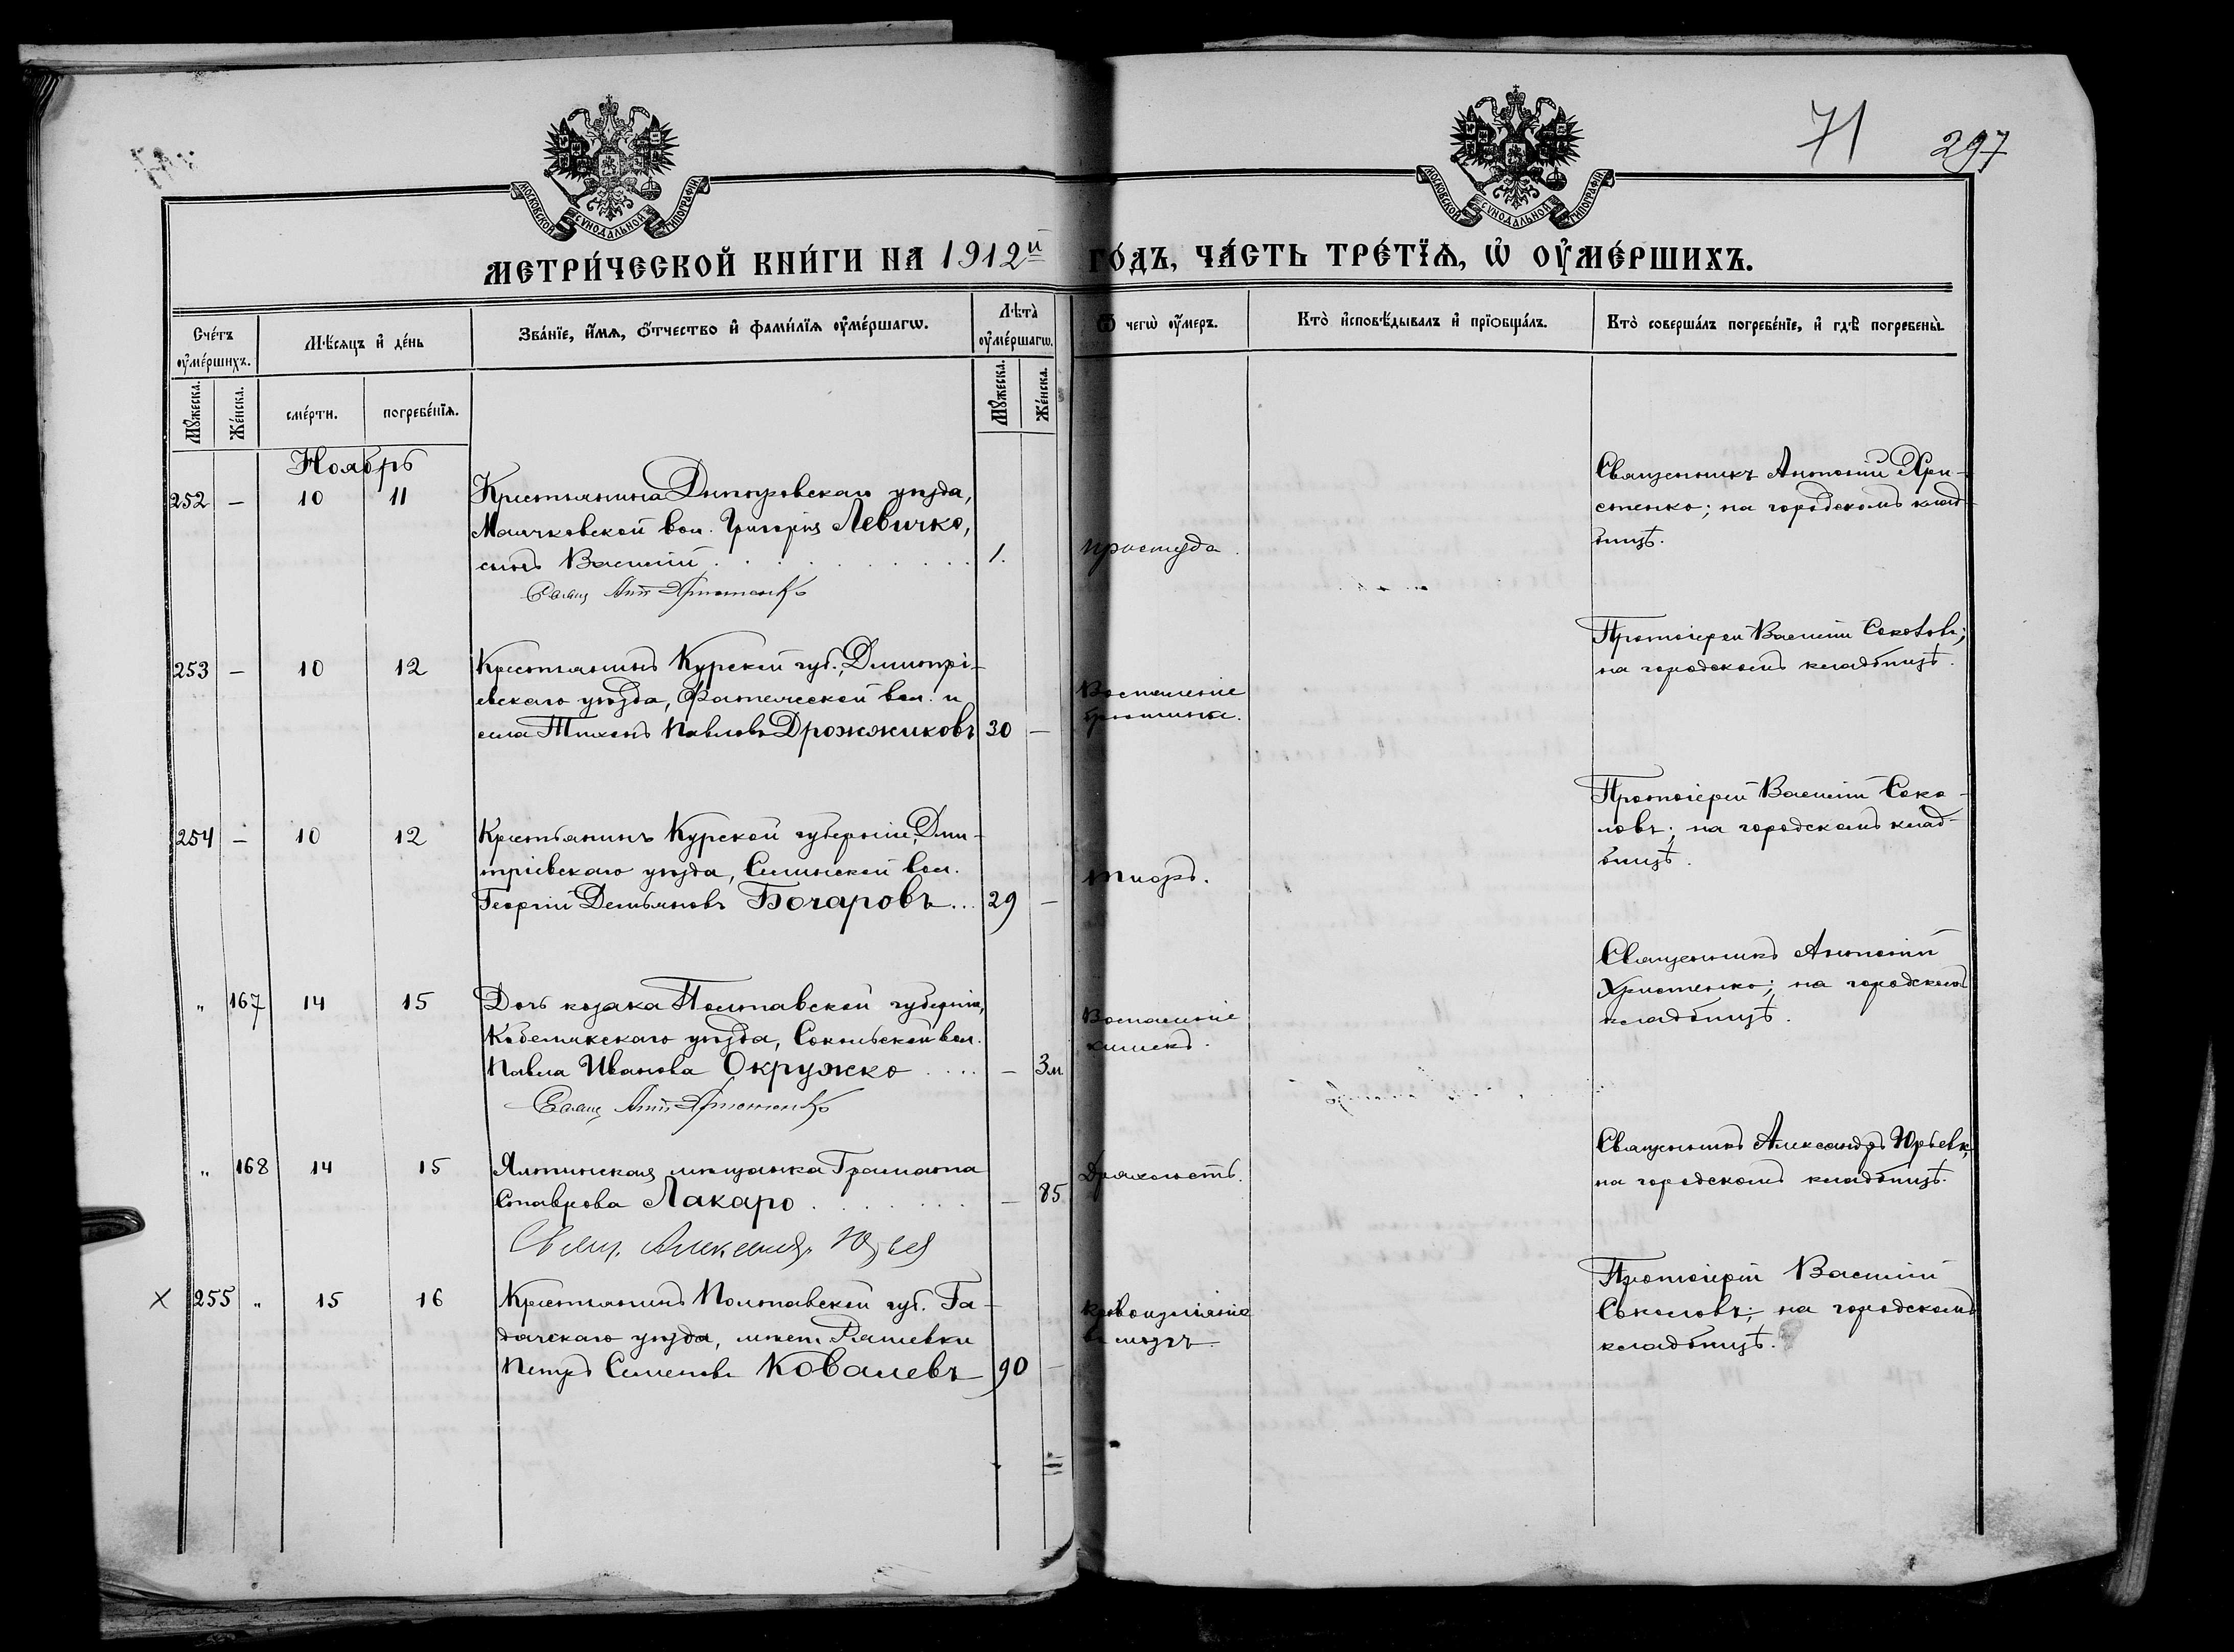 71
297
МОСКОВСКОЙ СѴНОДАЛЬНОЙ ТИПОГРАФІИ
МОСКОВСКОЙ СѴНОДАЛЬНОЙ ТИПОГРАФІИ
МЕТРИ́ЧЕСКОЙ КНИ́ГИ НА 1912й ГО́ДЪ, ЧА́СТЬ ТРЕ́ТЇѦ, Ѡ҆ ОУ҆МЕ́РШИХЪ.
Сче́тъ оу҆ме́ршихъ.
Мѣ́сяцъ и҆ де́нь
Зва́нїе, и҆́мѧ, ѻ҆́тчество и҆ фами́лїѧ оу҆ме́ршагѡ.
Лѣта̀ оу҆ме́ршагѡ.
Ѿ чегѡ̀ оу҆́меръ.
Кто̀ и҆сповѣ́дывалъ и҆ прїѡбща́лъ.
Кто̀ соверша́лъ погребе́нїе, и҆ гдѣ̀ погребены̀.
Мꙋ́жеска.
Же́нска.
сме́рти.
погребе́нїѧ.
Мꙋ́жеска.
Же́нска.
Ноябрь
252 — 10 11
Крестьянина Днѣпровскаго уѣзда,
Маячковской вол. Григорія Левичко,
сынъ Василій 1.
Свящ Ант Христенко
простуда
Священникъ Антоній Хри-
стенко; на городскомъ клад-
бищѣ.
253 — 10 12
Крестьянинъ Курской губ., Димитрі-
евскаго уѣзда, Фатежской вол. и
села Тихонъ Павловъ Дрожжиковъ 30 —
Воспаленіе
брюшины.
Протоіерей Василій Соколовъ;
на городскомъ кладбищѣ.
254 — 10 12
Крестьянинъ Курской губерніи, Дми-
тріевскаго уѣзда, Селинской вол.
Георгій Демьяновъ Бочаровъ... 29 —
тиоръ.
Протоіерей Василій Соко-
ловъ; на городскомъ клад-
бищѣ.
„ 167 14 15
Дочь козака Полтавской губерніи,
Кобелякскаго уѣзда, Сокольской вол.
Павла Иванова Окружко .... — 3м
Свящ Ант Христенко
Воспаленіе
кишекъ.
Священникъ Антоній
Христенко; на городскомъ
кладбищѣ.
„ 168 14 15
Ялтинская мѣщанка Грамата
Ставрова Лакаро — 85
Свящ. Александръ Юрьев
Дряхлость.
Священникъ Александръ Юрьевъ,
на городскомъ кладбищѣ.
X 255 „ 15 16
Крестьянинъ Полтавской губ. Га-
дячскаго уѣзда, мѣст. Рашевки
Петръ Семеновъ Ковалевъ 90 —
Кровоизліяніе
въ мозгъ.
Протоіерей Василій
Соколовъ; на городскомъ
кладбищѣ.